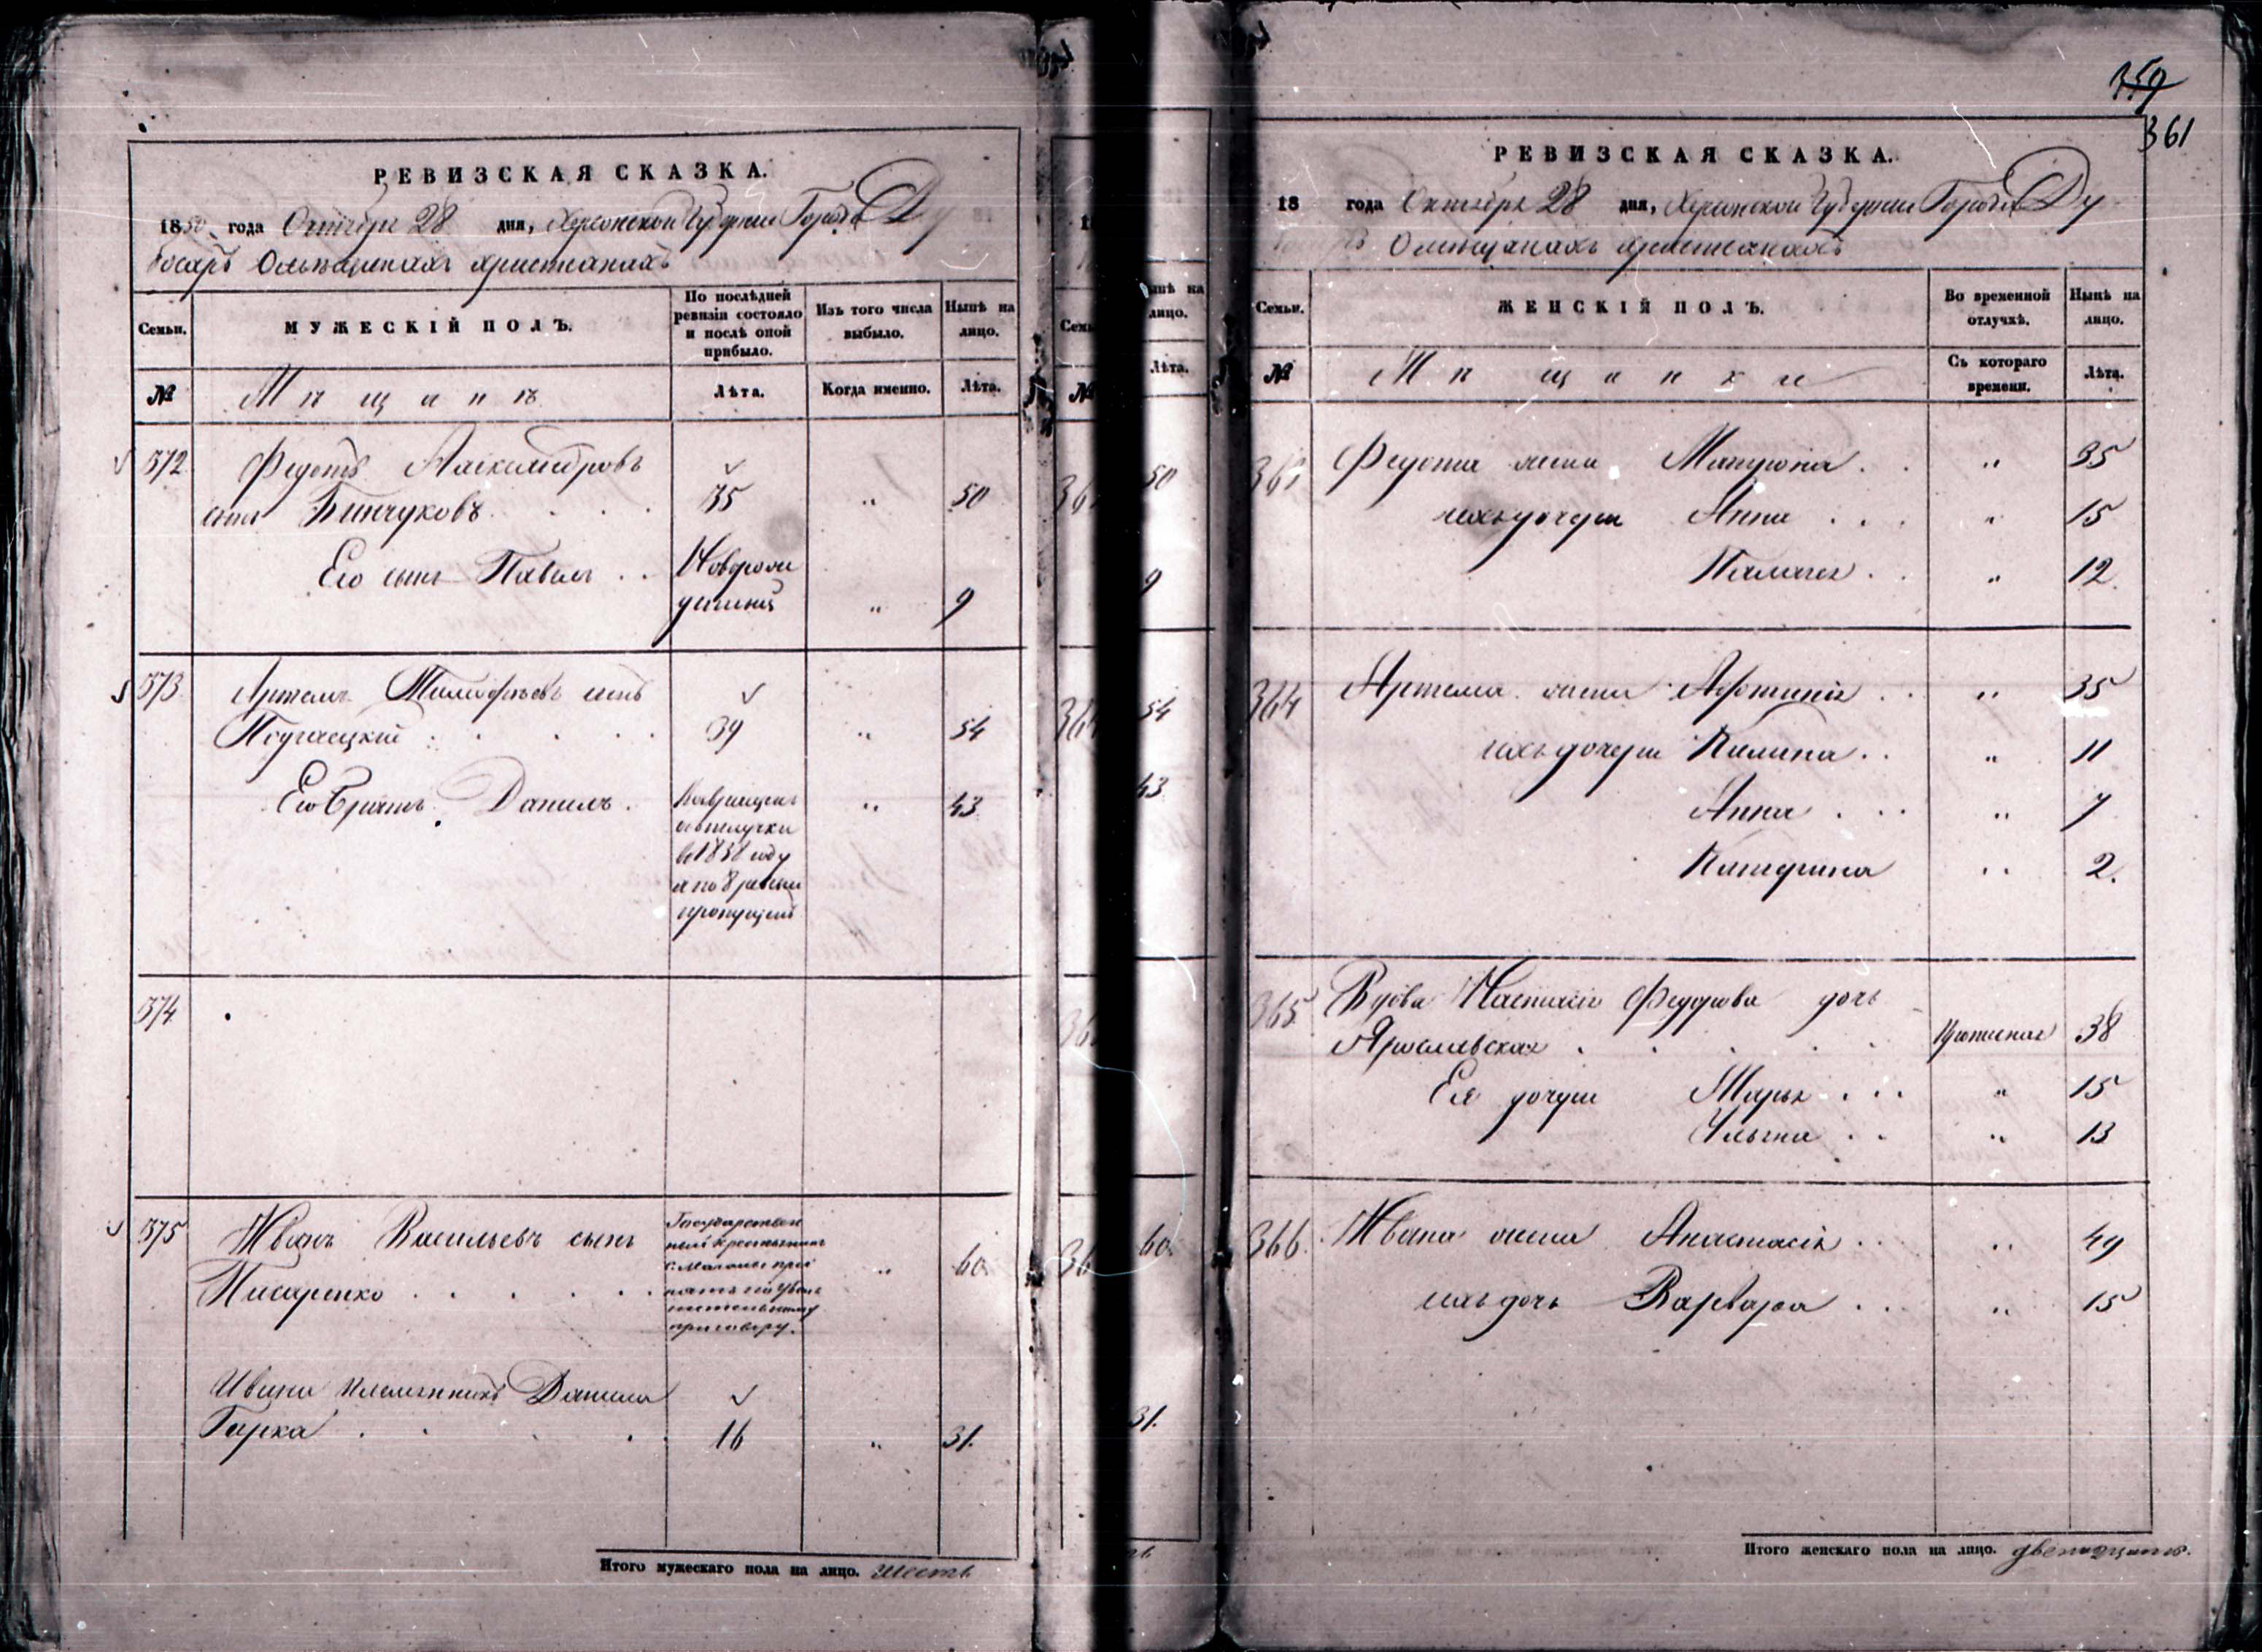 РЕВИЗСКАЯ СКАЗКА.
1850 года Октября 28 дня, Херсонской Губернии Города Ду
босаръ О мѣщанахъ христіанахъ
Семьи.
МУЖЕСКІЙ ПОЛЪ.
По послѣдней
ревизіи состояло
и послѣ оной
прибыло.
Изъ того числа
выбыло.
Нынѣ на
лицо.
№
Мѣщанъ
Лѣта.
Когда именно.
Лѣта.
372 Федотъ Александровъ
сынъ Бинчуковъ 35 " 50
Его сынъ Павелъ Новорож
денный " 9
373 Артемъ Тимофѣевъ сынъ
39 " 54
Его братъ Данилъ Возвращенъ " 43
изъ отлучки
въ 1838 году
а по 8 ревизіи
пропущенъ
374
375 Иванъ Васильевъ сынъ
Писаренко " 60
Государствен
ный крестьянинъ
с. Маловатое при
нятъ по уволь
нительному
приговору.
Ивана племянникъ Данила
Гарка 16 " 31.
Итого мужескаго пола на лицо. шесть
нынѣ на
лицо.
Лѣта.
№
50
9
364 54
43
60.
31.
359
361
РЕВИЗСКАЯ СКАЗКА.
18 года Октября 28 дня, Херсонской Губерніи Города Ду
О мѣщанахъ христіанахъ
Семьи.
ЖЕНСКІЙ ПОЛЪ.
Во временной
отлучкѣ.
Нынѣ на
лицо.
№
Мѣщанки
Съ котораго
времени.
Лѣта.
363 Федота жена Матрона " 35
ихъ дочери Анна " 15
Пелагея " 12
364 Артема жена " 35
ихъ дочери Килина " 11
Анна " 7
Катерина " 2.
365 Вдова Настасія Федорова дочь
Ярославская 38
Ея дочери Марья " 15
Ульяна " 13
366. Ивана жена Анастасія " 49
ихъ дочь Варвара " 15
Итого женскаго пола на лицо. двенадцать.